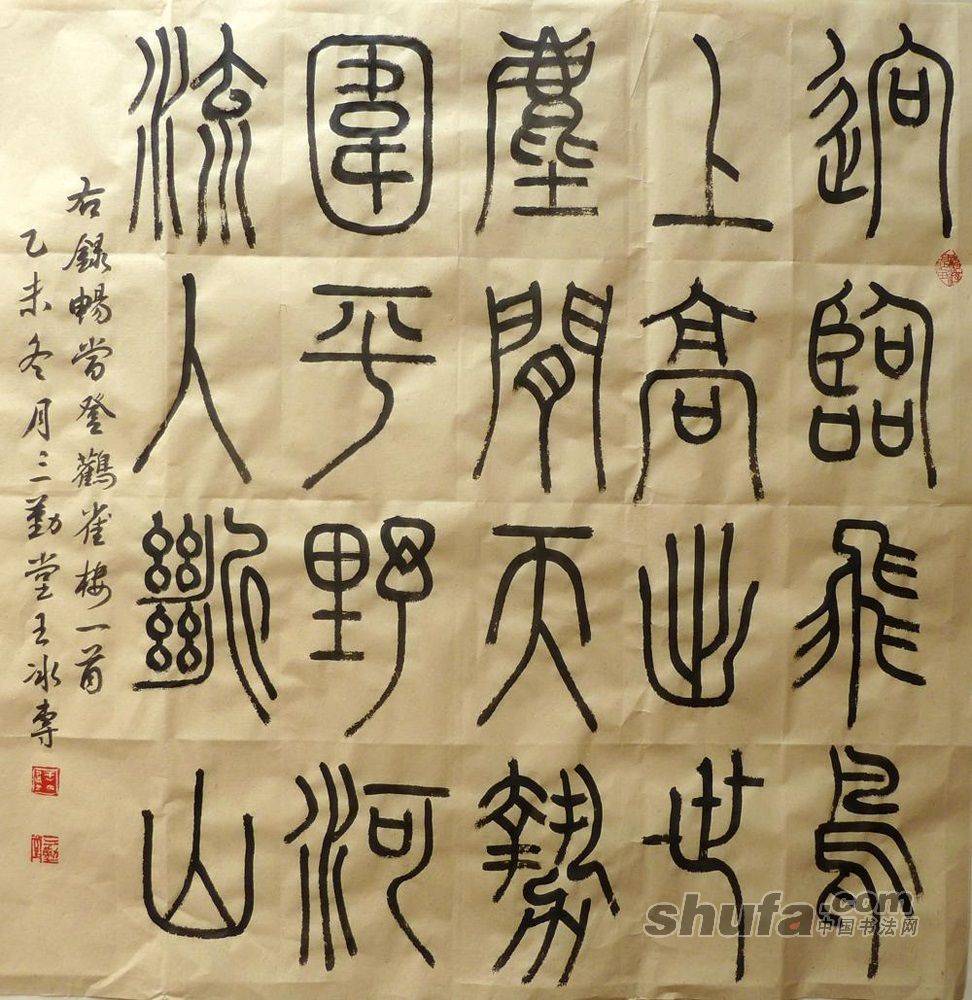 迥臨飛鳥
上高出世
塵閒天勢
圍平野河
流人斷山
右錄暢當登鸛雀樓一首
乙未冬月三勤堂王冰書
shufa.com
中国书法网